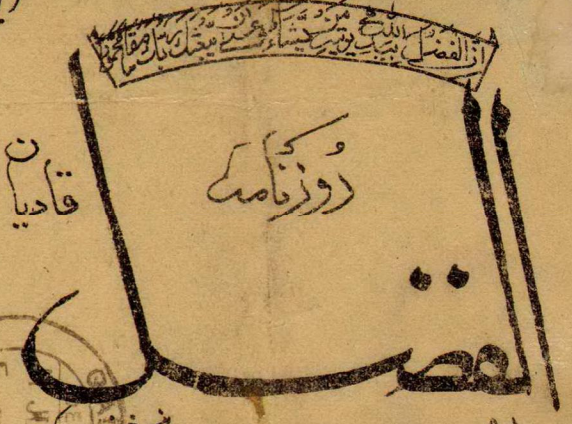 اِنَّ الفَضْلَ بِيَدِ اللهِ يُؤتِيهِ مَنْ يَّشَاءُ عَسٰى اَنْ يَّبْعَثَكَ رَبُّكَ مَقَامًا مَّحْمُودًا
روزنامہ
قادیان
الفضل